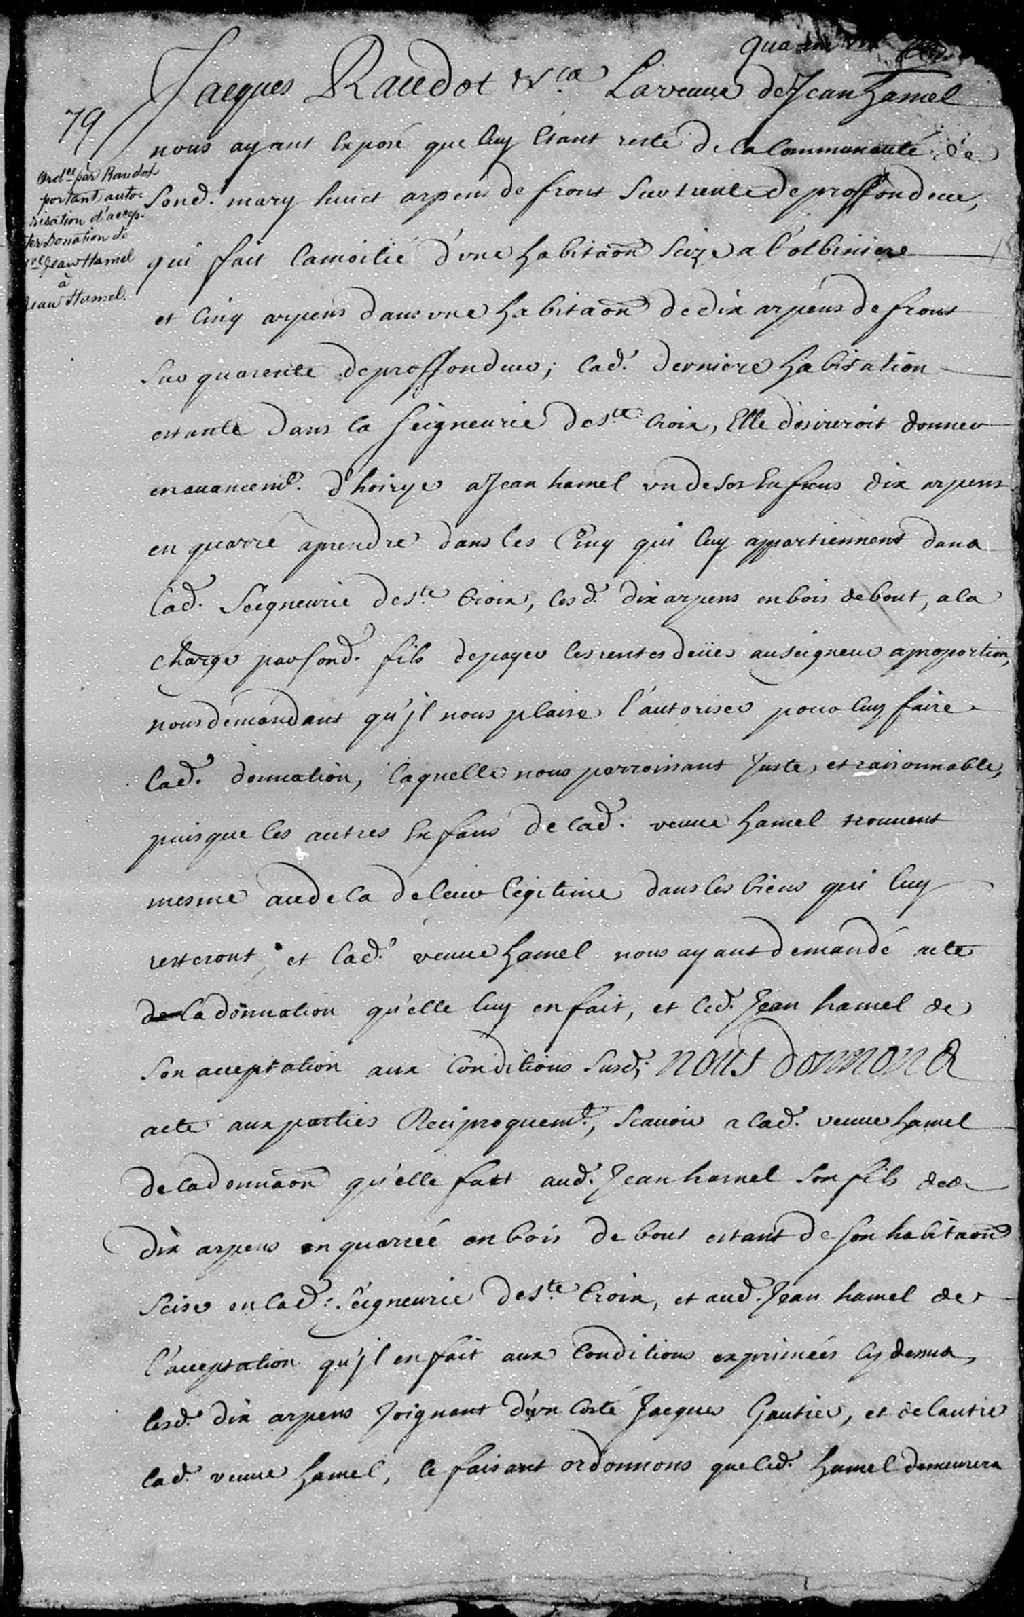 Jacques Raudot &ca La veuve de Jean hamel
79
nous ayant Exposé que luy Etant resté de la Communauté de
Ordce par Raudot
portant auto-
risation d'accep-
ter Donation de
Jean Hamel
à
Jean Hamel.
Sond. mary huict arpens de front Sur trente de proffondeur,
qui fait la moitié d'vne habitaôn Size a l'otbiniere
et Cinq arpens dans vne habitaôn de dix arpens de front
Sur quarente de proffondeur; lad. derniere habitation
estante dans la Seigneurie de Ste Croix, Elle desireroit donner
en auancemt. d'hoirye a Jean hamel vn de ses Enfans dix arpens
en quarré a prendre dans les Cinq qui luy appartiennent dans
lad. Seigneurie de Ste Croix, lesd. dix arpens en bois de bout, a la
charge par sond. fils de payer les rentes deües au Seigneur a proportion,
nous demandant qu'jl nous plaise l'autoriser pour luy faire
lad. donnation, laquelle nous parroissant Juste, et raisonnable,
puisque les autres Enfans de lad. veuue hamel trouuent
mesme au de la de leur legitime dans les biens qui luy
resteront, et lad. veuue hamel nous ayant demandé acte
de la donnation qu'elle luy en fait, et led. Jean hamel de
Son acceptation aux Conditions Susd. nous donnons
acte aux parties Reciproquemt., Scauoir a lad. veuue hamel
de la donnâon qu'elle fait aud. Jean hamel Son fils de
dix arpens en quarré en bois de bout estant de Son habitaôn
Scise en lad. Seigneurie de Ste Croix, et aud. Jean hamel de
l'acceptation qu'jl en fait aux Conditions exprimées cy dessus,
lesd. dix arpens Joignant d'vn Costé Jacques Gautier, et de l'autre
lad. veuue hamel, Ce faisant ordonnons que led. hamel demeurera